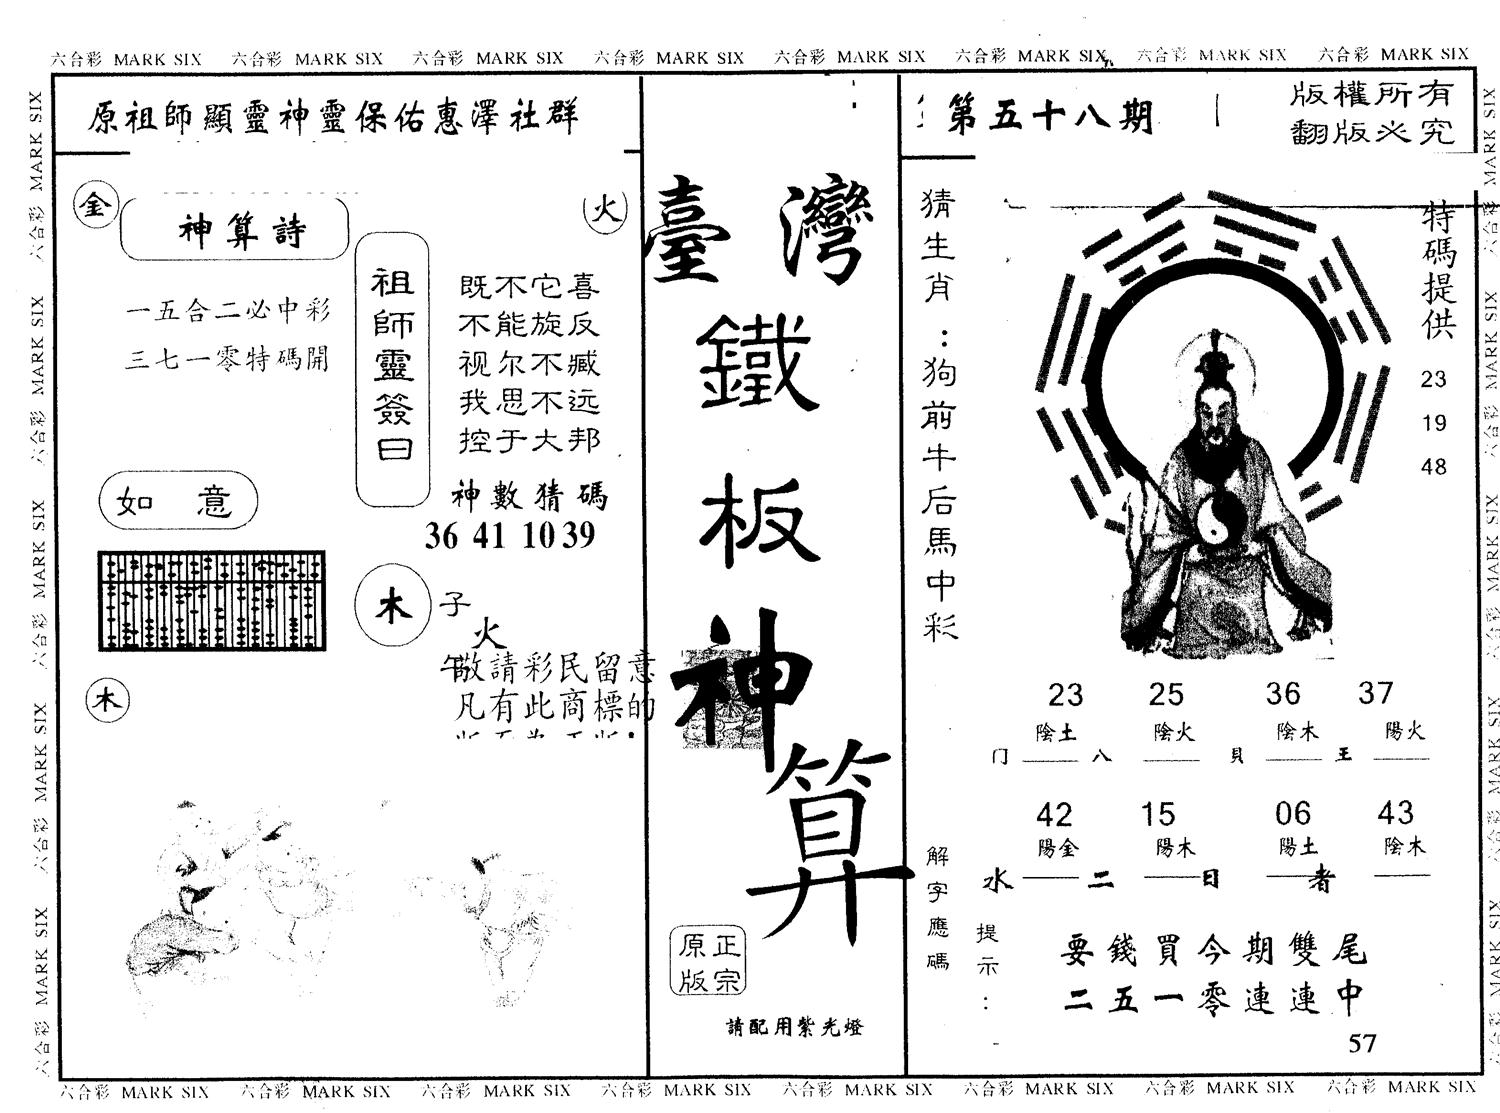 六合彩 MARK SIX 六合彩 MARK SIX 六合彩 MARK SIX 六合彩 MARK SIX 六合彩 MARK SIX 六合彩 MARK SIX 六合彩 MARK SIX 六合彩 MARK SIX
原祖師顯靈神靈保佑惠澤社群
金
神算詩
火
一五合二必中彩
三七一零特碼開
祖師靈簽曰
既不它喜
不能旋反
视尔不臧
我思不远
控于大邦
神數猜碼
36 41 10 39
如 意
木
子
火
午
木
敬請彩民留意
凡有此商標的
臺灣
鐵
板
神
算
正宗
原版
請配用紫光燈
第五十八期
版權所有
翻版必究
猜生肖：狗前牛后馬中彩
特碼提供
23
19
48
23 25 36 37
陰土 陰火 陰木 陽火
门 八 貝 王
42 15 06 43
陽金 陽木 陽土 陰木
水 二 日 者
解字應碼
提示：
要錢買今期雙尾
二五一零連連中
57
六合彩 MARK SIX 六合彩 MARK SIX 六合彩 MARK SIX 六合彩 MARK SIX 六合彩 MARK SIX
六合彩 MARK SIX 六合彩 MARK SIX 六合彩 MARK SIX 六合彩 MARK SIX 六合彩 MARK SIX
六合彩 MARK SIX 六合彩 MARK SIX 六合彩 MARK SIX 六合彩 MARK SIX 六合彩 MARK SIX 六合彩 MARK SIX 六合彩 MARK SIX 六合彩 MARK SIX